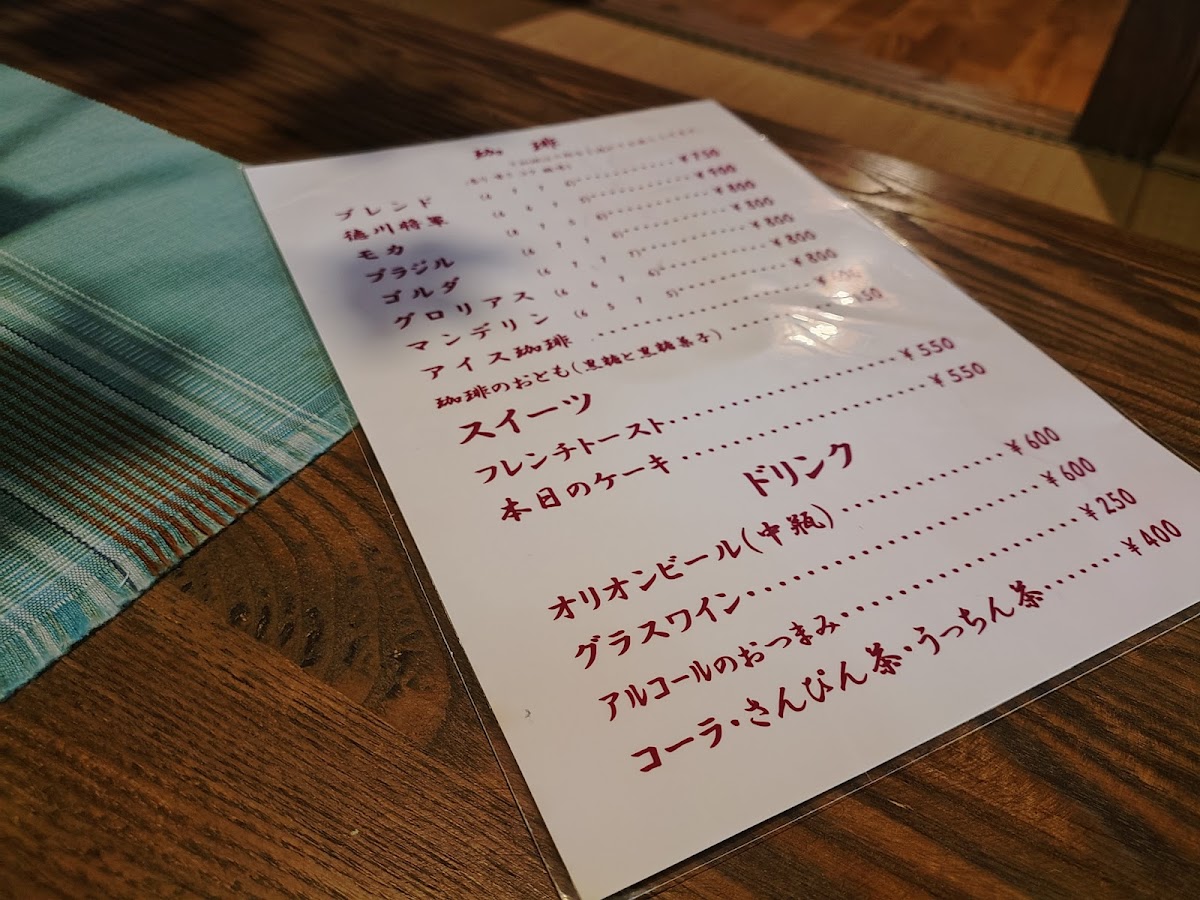 珈琲
ブレンド (4 7 7 6) ¥750
徳川将軍 (4 6 7 5) ¥900
モカ ¥800
ブラジル ¥800
ゴルダ (6 7 7 7) ¥800
グロリアス (6 6 7 6) ¥800
マンデリン (6 5 7 5) ¥800
アイス珈琲
珈琲のおとも(黒糖と黒糖菓子)
スイーツ
フレンチトースト ¥550
本日のケーキ ¥550
ドリンク
オリオンビール(中瓶) ¥600
グラスワイン ¥600
アルコールのおつまみ ¥250
コーラ・さんぴん茶・うっちん茶 ¥400